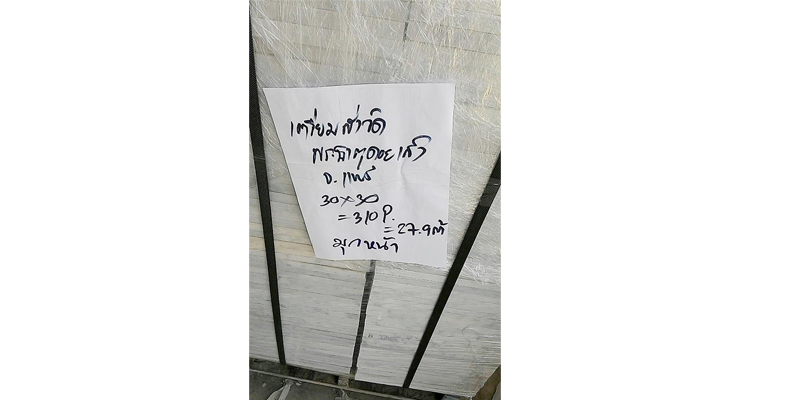 เตรียมส่งวัด
พระธาตุดอยเล็ง
จ.แพร่
30x30
= 310 P.
= 27.9 ตร
มุกหน้า